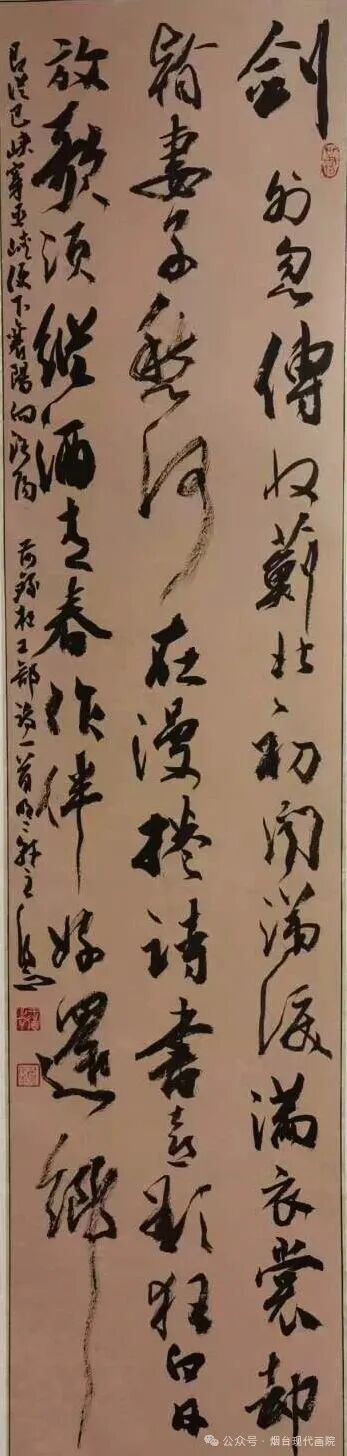 劍外忽傳收薊北初聞涕淚滿衣裳却
看妻子愁何在漫捲詩書喜欲狂白日
放歌須縱酒青春作伴好還鄉
即從巴峽穿巫峽便下襄陽向洛陽 錄杜工部詩一首
公众号 · 烟台现代画院